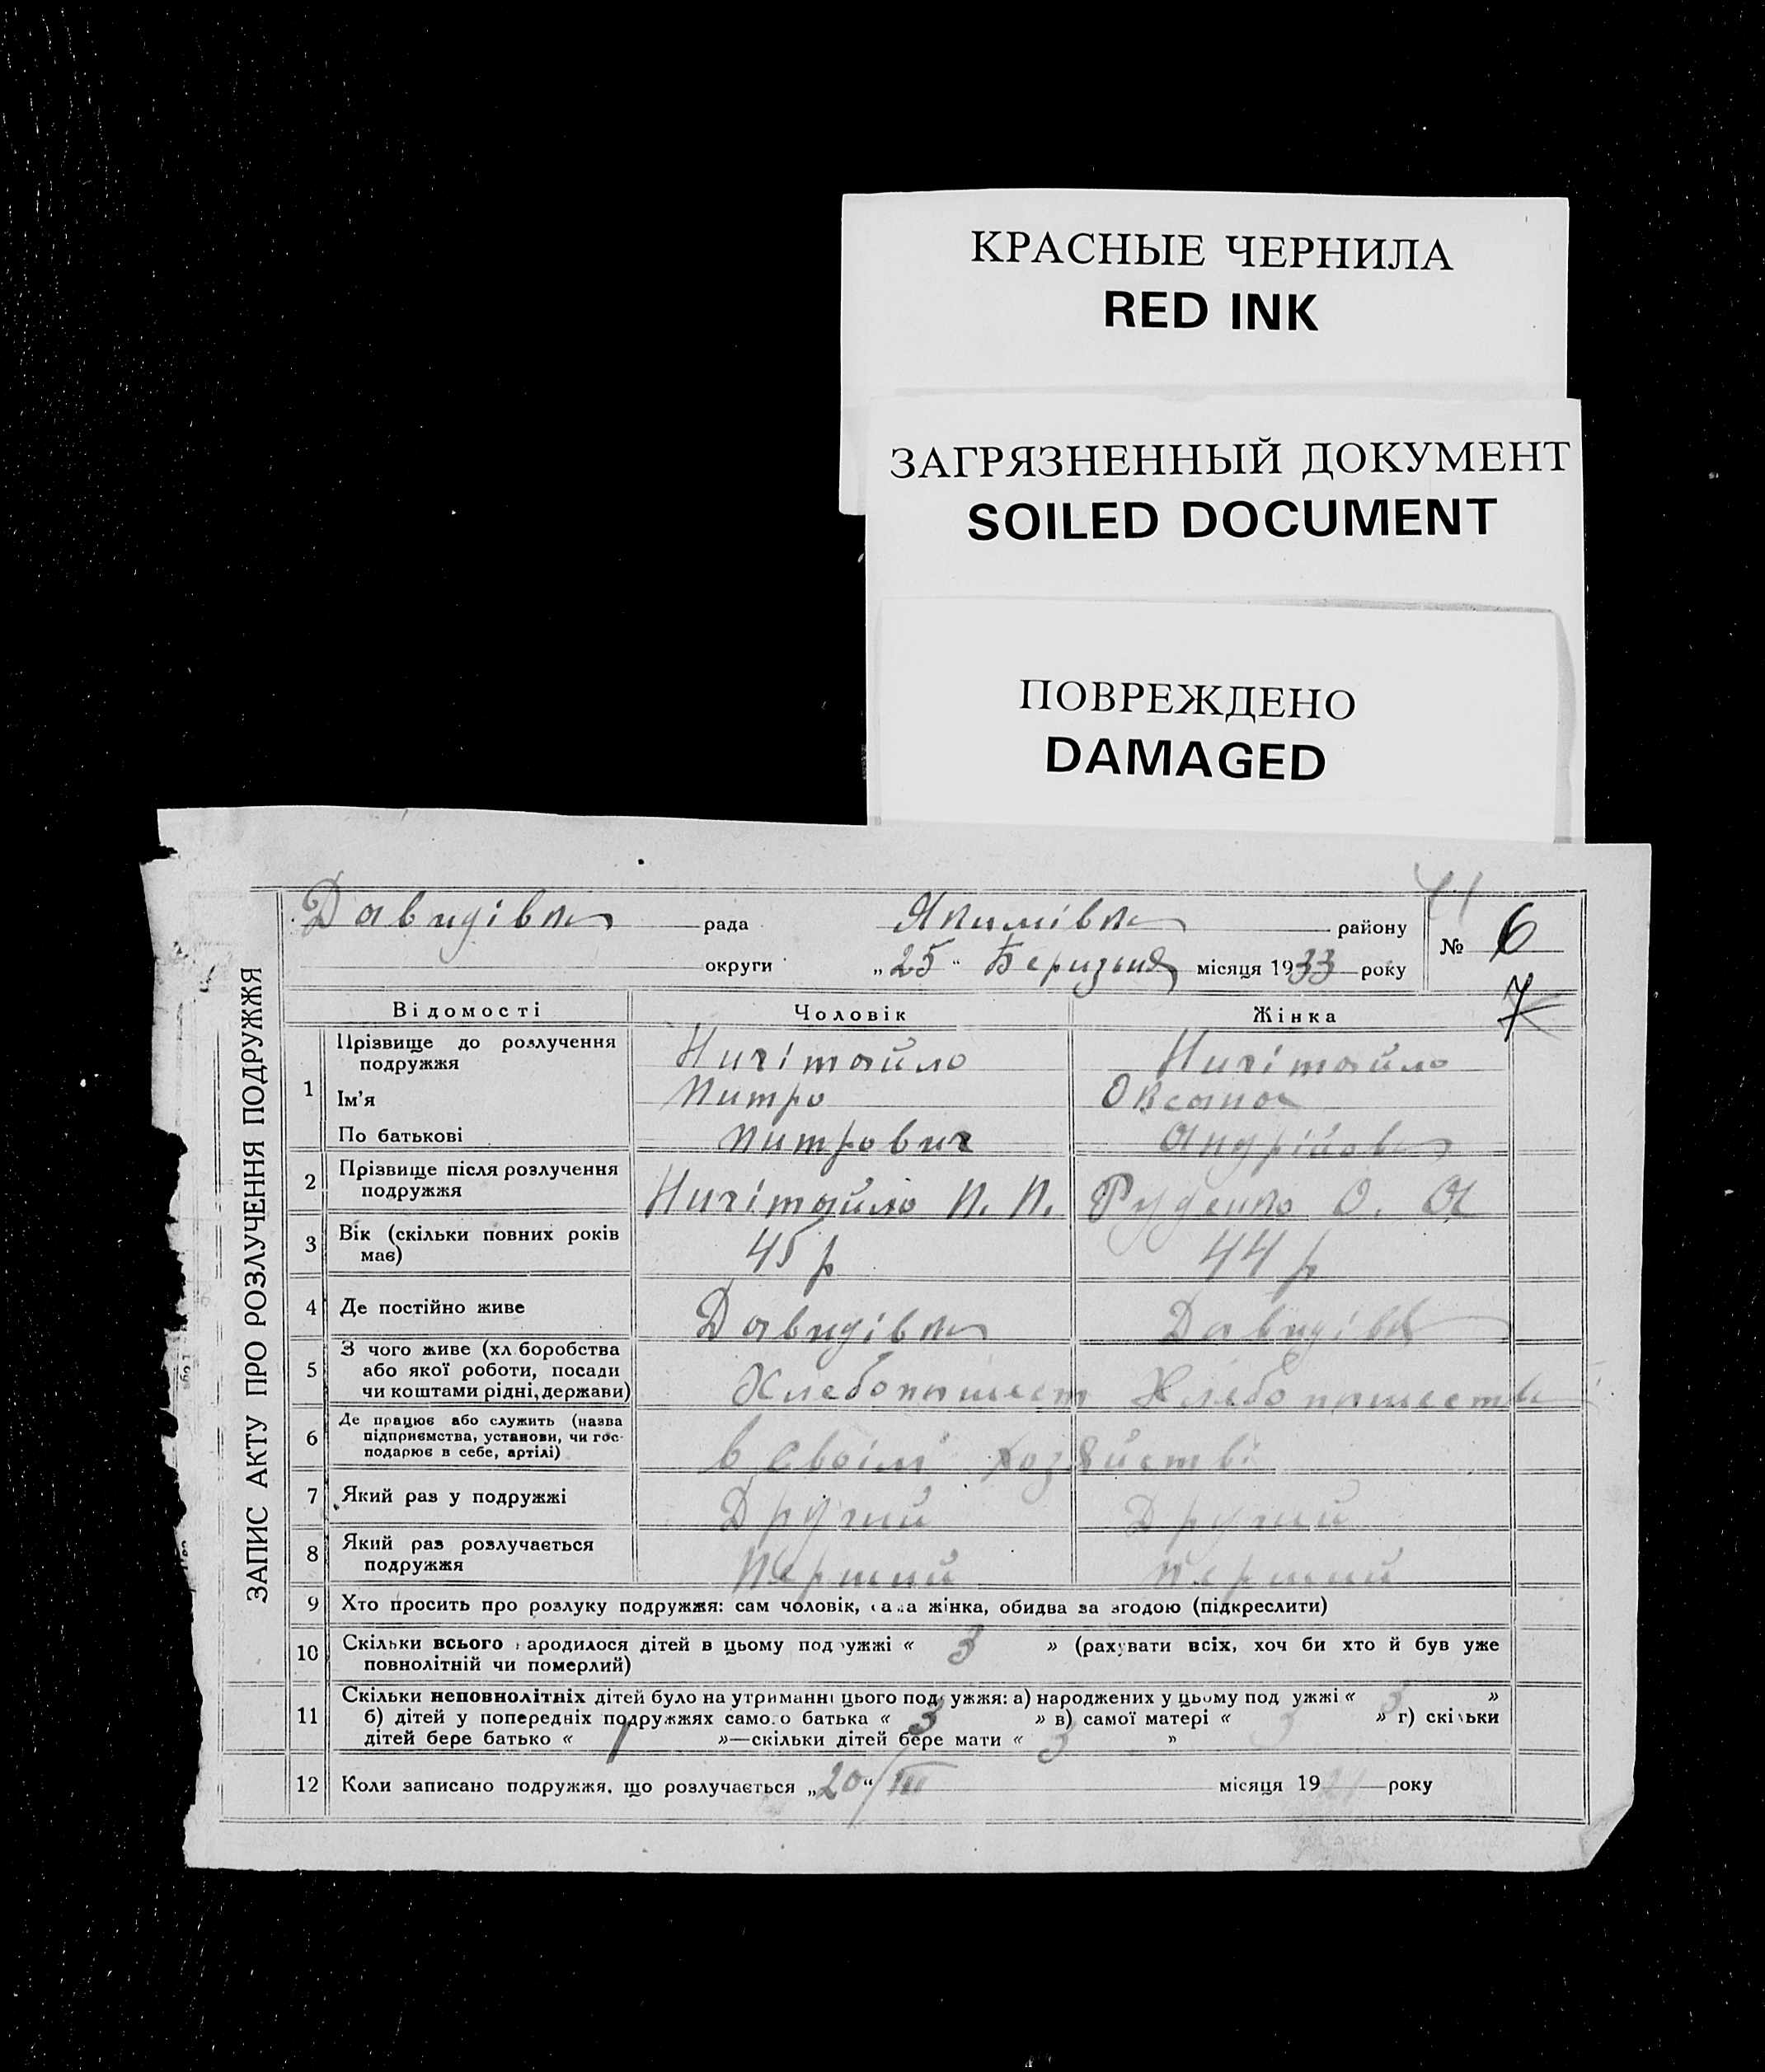 КРАСНЫЕ ЧЕРНИЛА
RED INK
ЗАГРЯЗНЕННЫЙ ДОКУМЕНТ
SOILED DOCUMENT
ПОВРЕЖДЕНО
DAMAGED
ЗАПИС АКТУ ПРО РОЗЛУЧЕННЯ ПОДРУЖЖЯ
Давидівка рада Якимівка району
округи „25“ Беризьня місяця 1933 року
№ 6
7
Відомості Чоловік Жінка
1 Прізвище до розлучення подружжя Ничітайло Ничітайло
Ім'я Питро Оксана
По батькові Питрович Андрійовна
2 Прізвище після розлучення подружжя Ничітайло П. П. Руденко О. А
3 Вік (скільки повних років має) 45 р 44 р
4 Де постійно живе Давидівка Давидівка
5 З чого живе (хл боробства
або якої роботи, посади
чи коштами рідні, держави) Хлебопашест Хлебопашеств
6 Де працює або служить (назва
підприємства, установи, чи гос-
подарює в себе, артілі) в своім хозяйстві
7 Який раз у подружжі Другий Другий
8 Який раз розлучається
подружжя Перший Перший
9 Хто просить про розлуку подружжя: сам чоловік, сама жінка, обидва за згодою (підкреслити)
10 Скільки всього народилося дітей в цьому подружжі « 3 » (рахувати всіх, хоч би хто й був уже
повнолітній чи померлий)
11 Скільки неповнолітніх дітей було на утриманні цього подружжя: а) народжених у цьому подружжі « 3 »
б) дітей у попередніх подружжях самого батька « 3 » в) самої матері « 3 » г) скільки
дітей бере батько « 1 »—скільки дітей бере мати « 3 »
12 Коли записано подружжя, що розлучається „20“/III місяця 1921 року